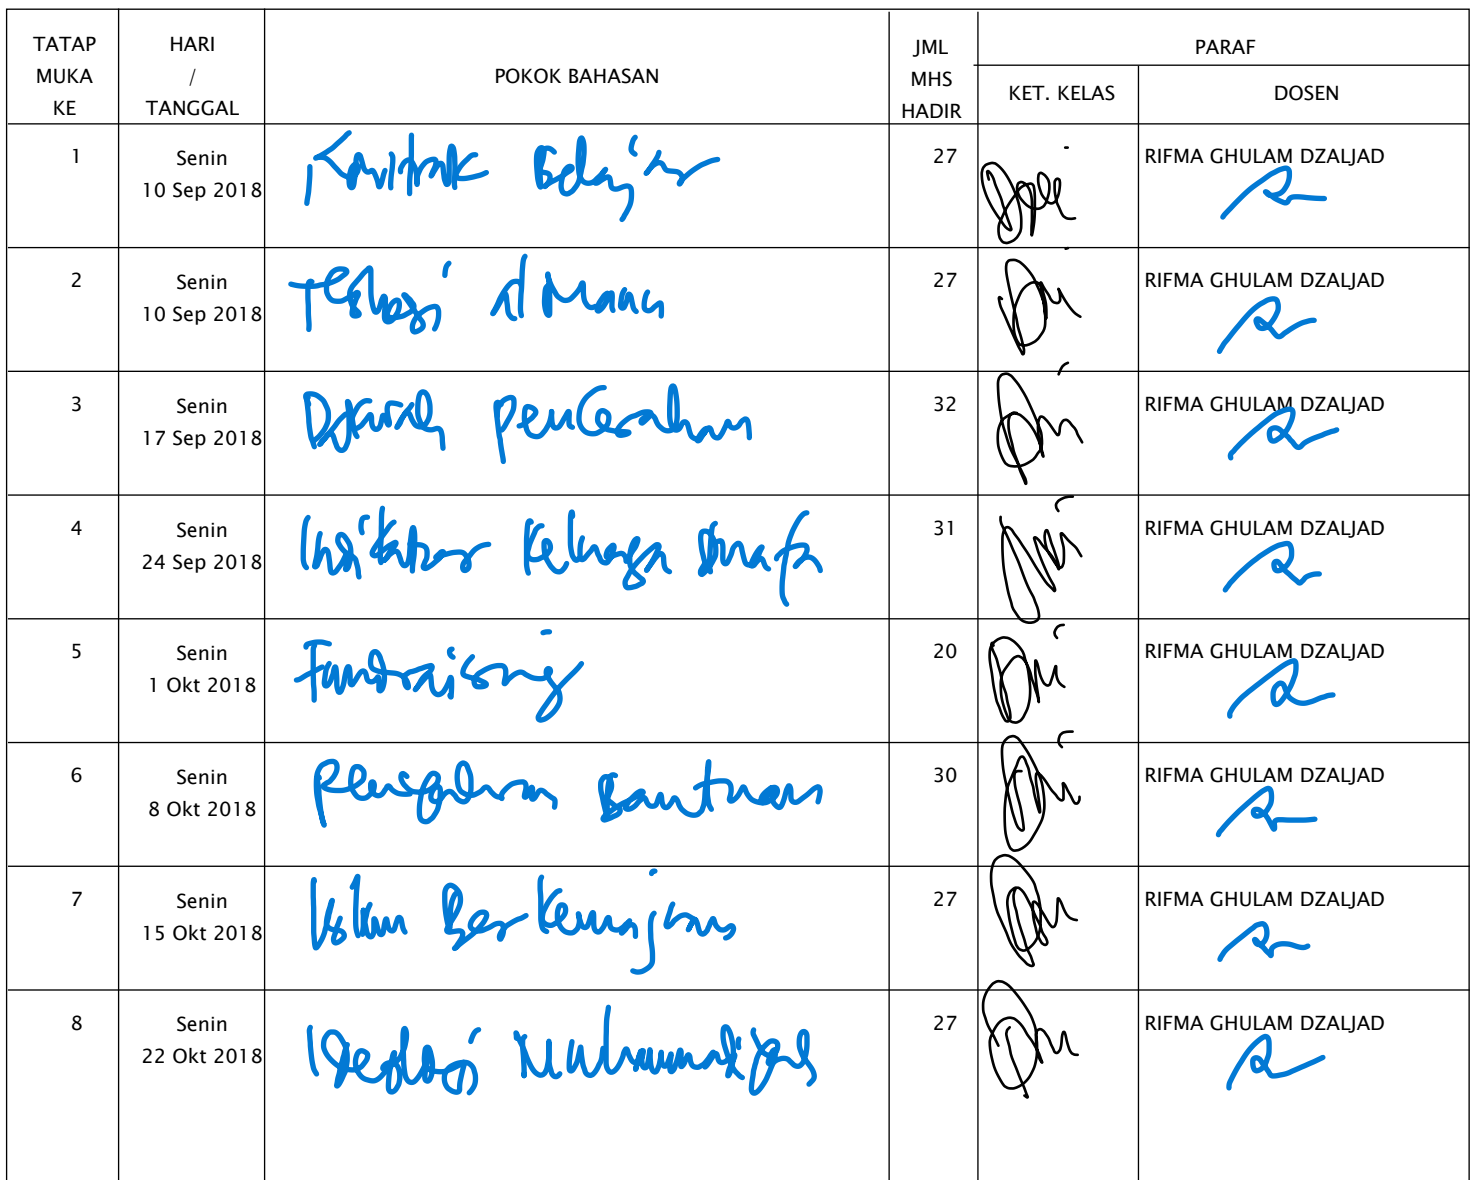 TATAP MUKA KE
HARI / TANGGAL
POKOK BAHASAN
JML MHS HADIR
PARAF
KET. KELAS
DOSEN
1
Senin
10 Sep 2018
Kontrak Belajar
27
RIFMA GHULAM DZALJAD
2
Senin
10 Sep 2018
Teologi al Maun
27
RIFMA GHULAM DZALJAD
3
Senin
17 Sep 2018
Dakwah pencerahan
32
RIFMA GHULAM DZALJAD
4
Senin
24 Sep 2018
Indikator Keluarga
31
RIFMA GHULAM DZALJAD
5
Senin
1 Okt 2018
Fundraising
20
RIFMA GHULAM DZALJAD
6
Senin
8 Okt 2018
Bantuan
30
RIFMA GHULAM DZALJAD
7
Senin
15 Okt 2018
Islam Berkemajuan
27
RIFMA GHULAM DZALJAD
8
Senin
22 Okt 2018
Ideologi Muhammadiyah
27
RIFMA GHULAM DZALJAD